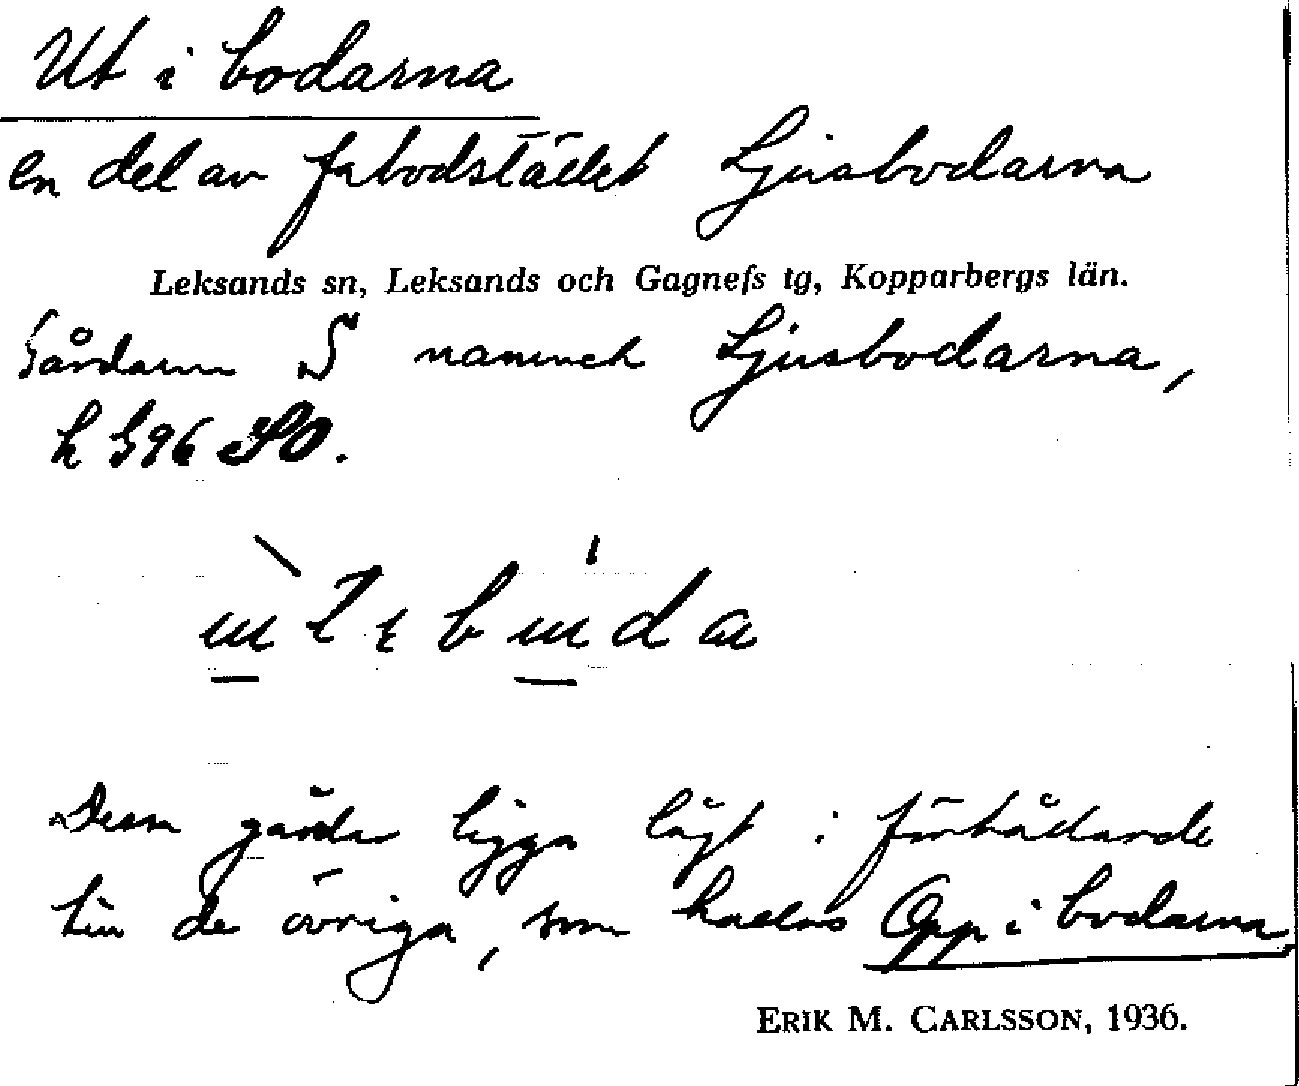 Ut i bodarna
en del av fäbodstället Ljusbodarna
Leksands sn, Leksands och Gagnefs tg, Kopparbergs län.
Gårdarna S namnet Ljusbodarna,
k 396 SO.
Dessa gårdar ligga lågt i förhållande
till de övriga, som kallas Opp i bodarna
ERIK M. CARLSSON, 1936.